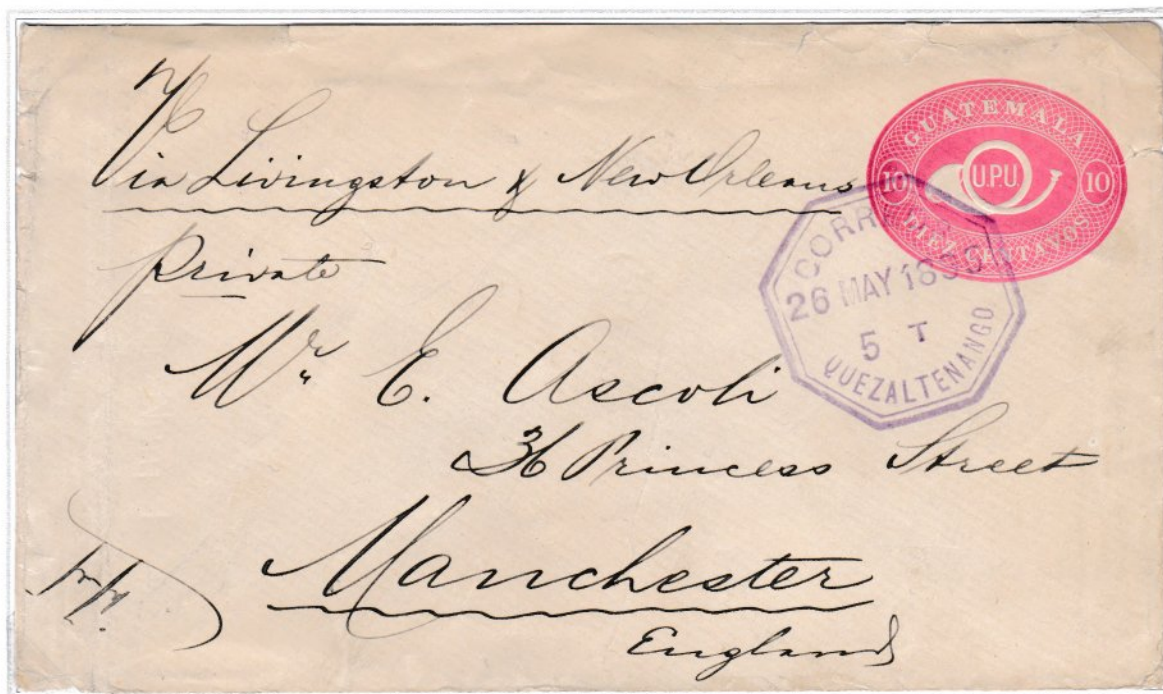 Via Livingston & New Orleans
Private
Mr E. Ascoli
36 Princess Street
Manchester
England
GUATEMALA
10 U.P.U. 10
DIEZ CENTAVOS
CORREOS
26 MAY
5 T
QUEZALTENANGO